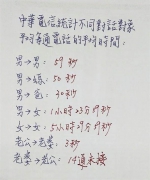 中華電信統計不同對話對象
平均每通電話的平均時間：
男→男：59秒
男→媽：50秒
男→爸：30秒
男→女：1小時23分49秒
女→女：5小時29分49秒
老公→老婆：3秒
老婆→老公：14通未接